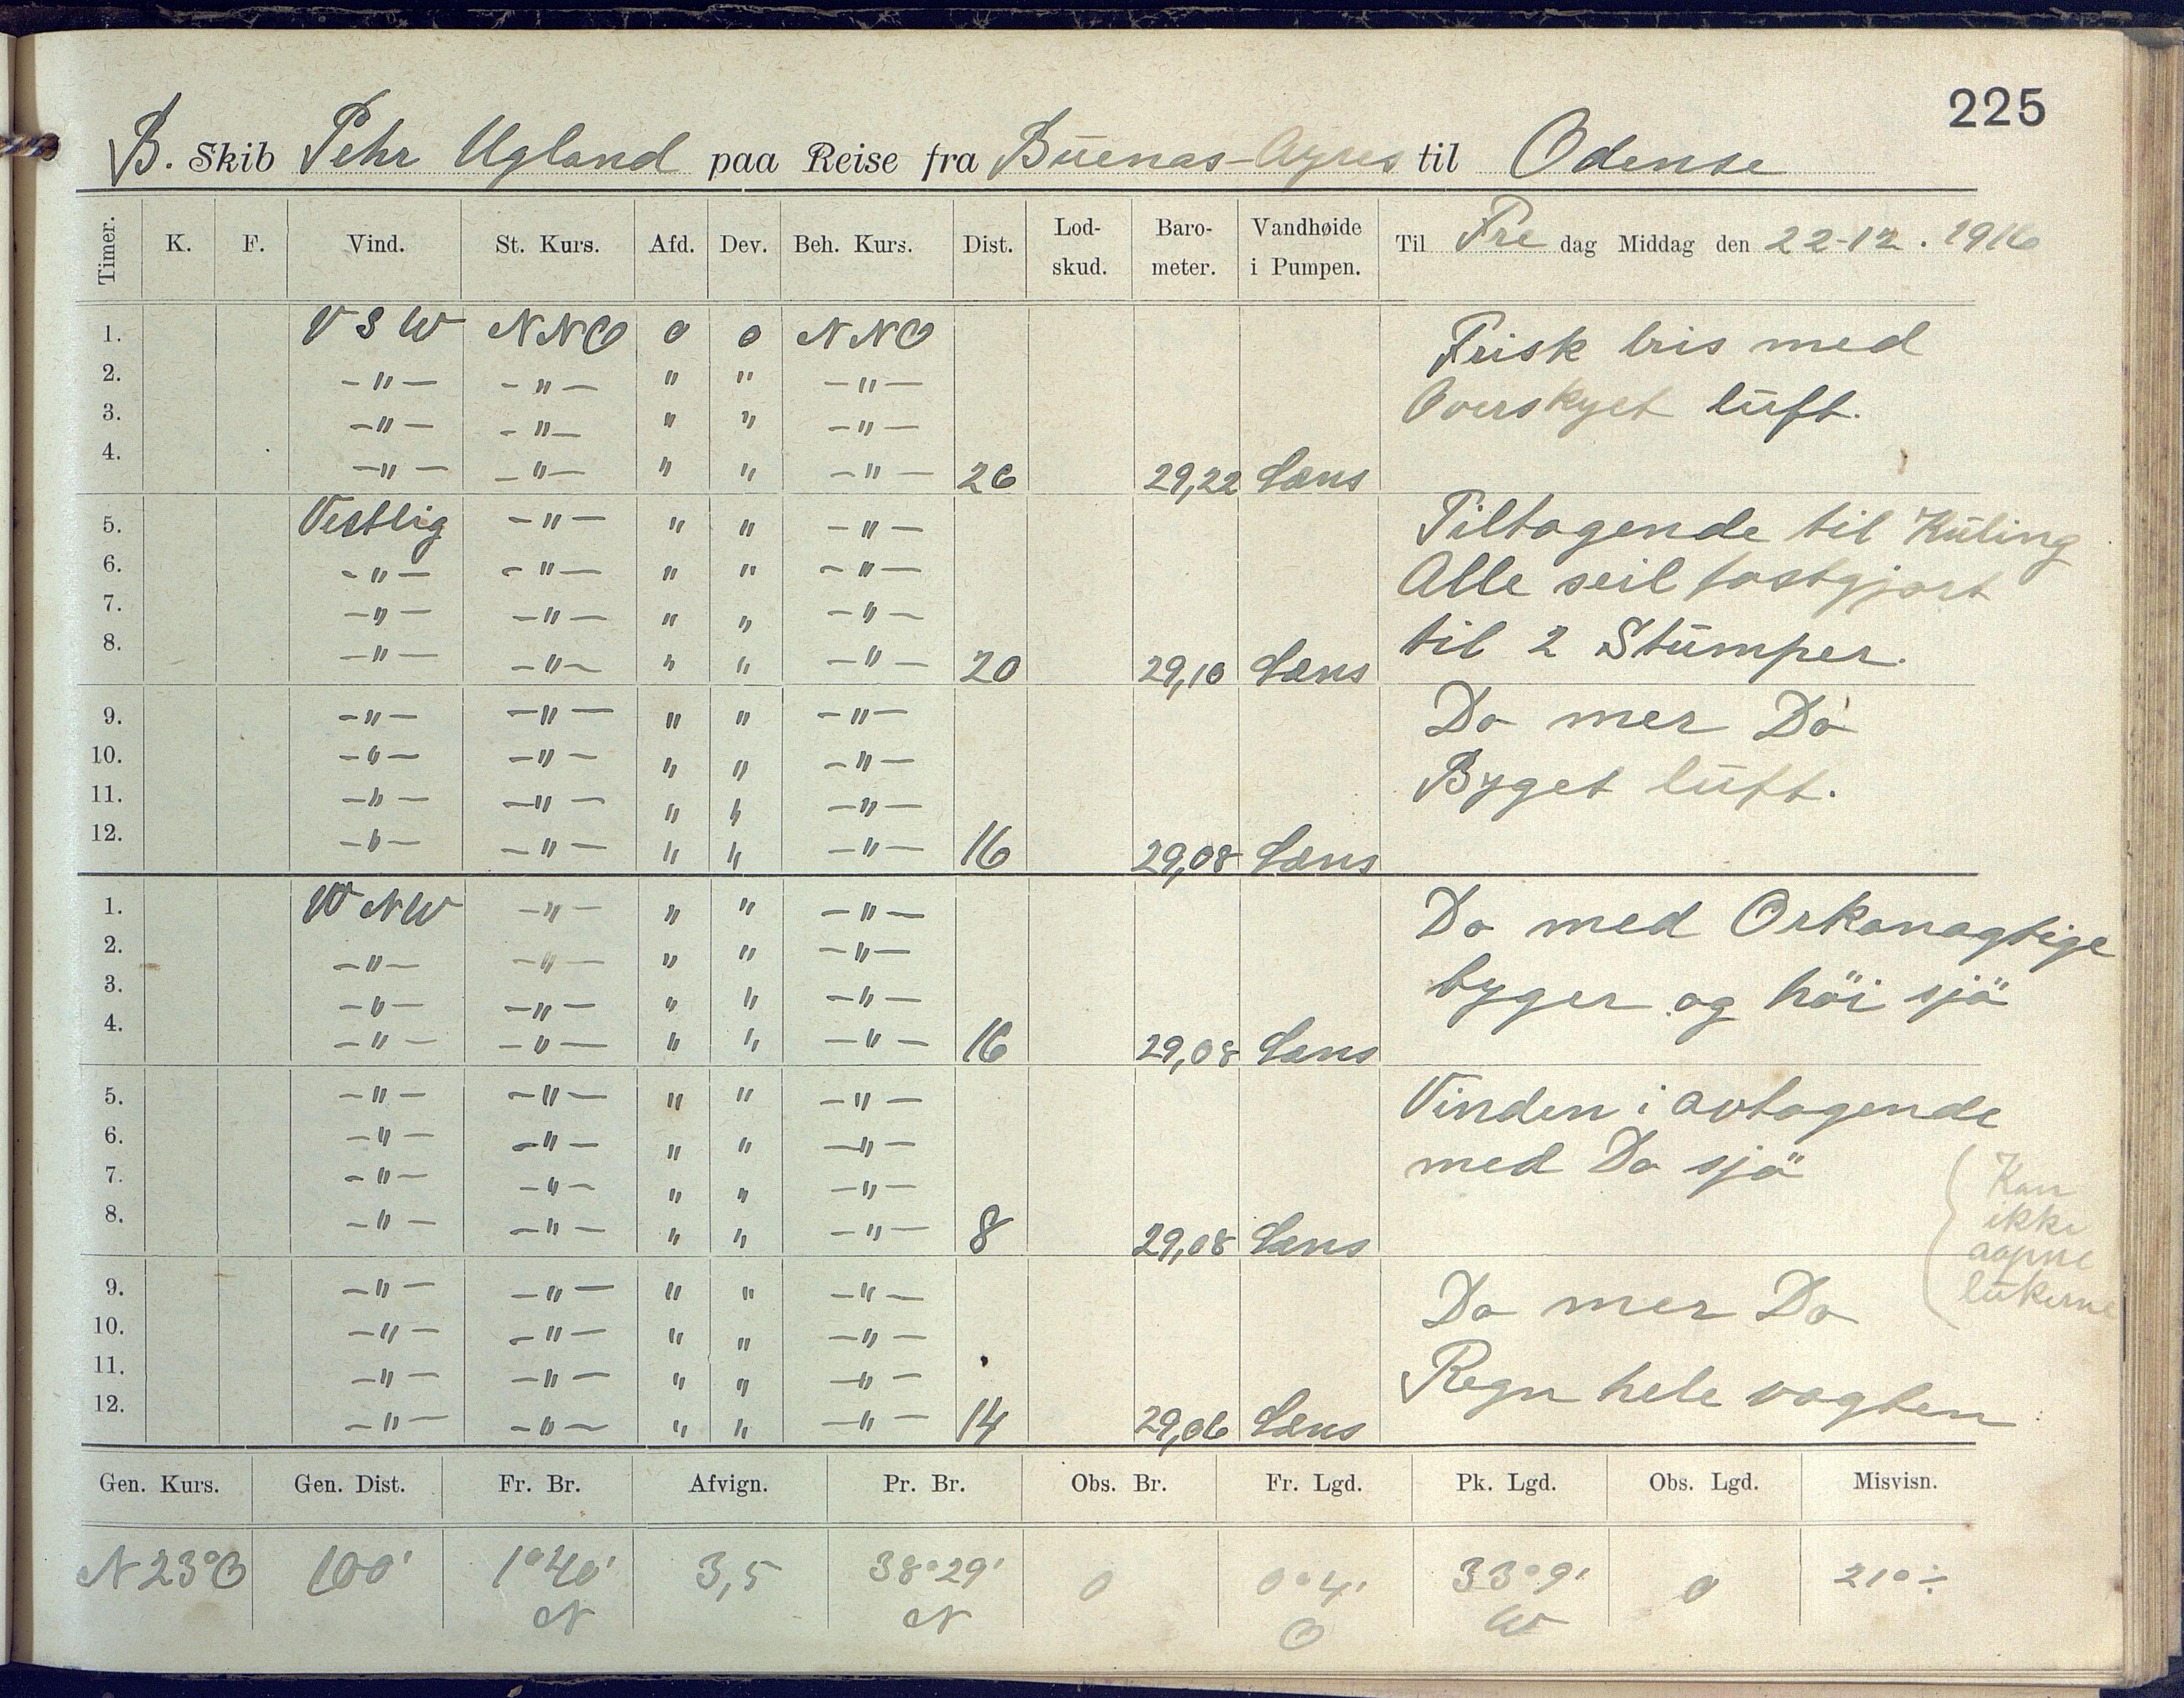 225
B. Skib Pehr Ugland paa Reise fra Buenas-Ayres til Odense
Timer. K. F. Vind. St. Kurs. Afd. Dev. Beh. Kurs. Dist. Lod-skud. Baro-meter. Vandhøide i Pumpen. Til Fre dag Middag den 22-12. 1916
1. V S W NNO 0 0 NNO Frisk bris med
2. -"- -"- " " -"- Overskyet luft.
3. -"- -"- " " -"-
4. -"- -"- " " -"- 26 29,22 Læns
5. Vestlig -"- " " -"- Tiltagende til Kuling
6. -"- -"- " " -"- Alle seil fastgjort
7. -"- -"- " " -"- til 2 Stumper.
8. -"- -"- " " -"- 20 29,10 Læns
9. -"- -"- " " -"- Do mer Do
10. -"- -"- " " -"- Byget luft.
11. -"- -"- " " -"-
12. -"- -"- " " -"- 16 29,08 Læns
1. W NW -"- " " -"- Do med Orkanagtige
2. -"- -"- " " -"- byger og höi sjö
3. -"- -"- " " -"-
4. -"- -"- " " -"- 16 29,08 Læns
5. -"- -"- " " -"- Vinden i avtagende
6. -"- -"- " " -"- med Do sjö
7. -"- -"- " " -"-
8. -"- -"- " " -"- 8 29,08 Læns
Kan
ikke
aapne
lukerne
9. -"- -"- " " -"- Do mer Do
10. -"- -"- " " -"- Regn hele vagten
11. -"- -"- " " -"-
12. -"- -"- " " -"- 14 29,06 Læns
Gen. Kurs. Gen. Dist. Fr. Br. Afvign. Pr. Br. Obs. Br. Fr. Lgd. Pk. Lgd. Obs. Lgd. Misvisn.
N 23° O 100' 1°40' N 3,5 38°29' N 0 0°4' O 33°9' W 0 21° ÷